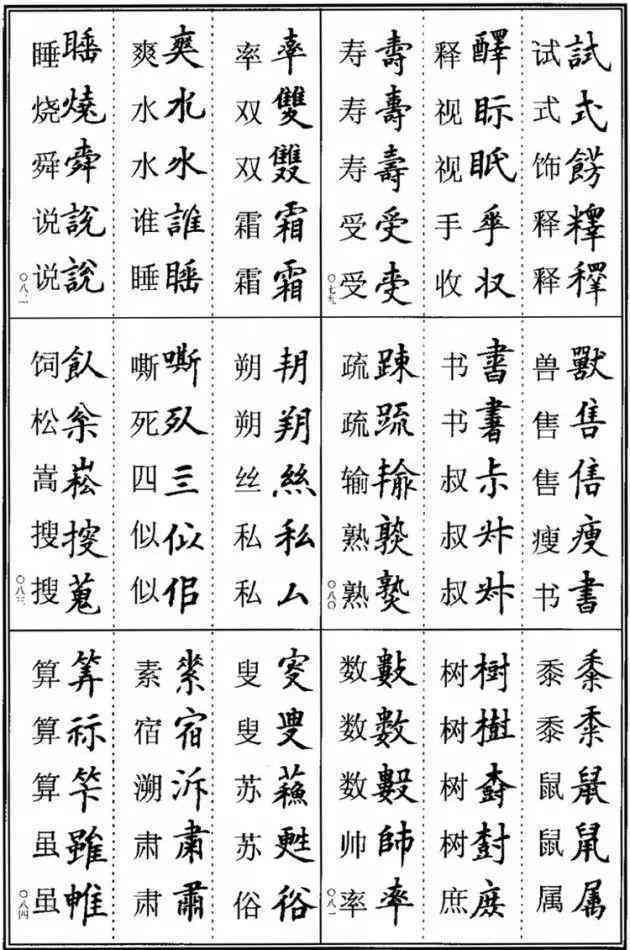 试試
式式
饰餝
释釋
释释
释醳
视眎
视眡
手手
收収
寿壽
寿壽
寿壽
受受
受受
〇七九
兽獸
售售
售售
瘦瘦
书書
书書
书書
叔尗
叔村
叔村
疏踈
疏疏
输输
熟熟
熟熟
〇八〇
黍黍
黍黍
鼠鼠
鼠鼠
属属
树樹
树樹
树樹
树尌
庶庶
数數
数數
数數
帅帥
率率
〇八一
率率
双雙
双雙
霜霜
霜霜
爽爽
水水
水水
谁誰
睡睡
睡睡
烧燒
舜舜
说說
说說
〇八二
朔朔
朔朔
丝絲
私私
私厶
嘶嘶
死死
四亖
似似
似佀
饲飤
松枀
嵩崧
搜搜
搜蒐
〇八三
叟叜
叟叟
苏蘓
苏甦
俗俗
素素
宿宿
溯泝
肃肅
肃肅
算筭
算祘
算笇
虽雖
虽雖
〇八四